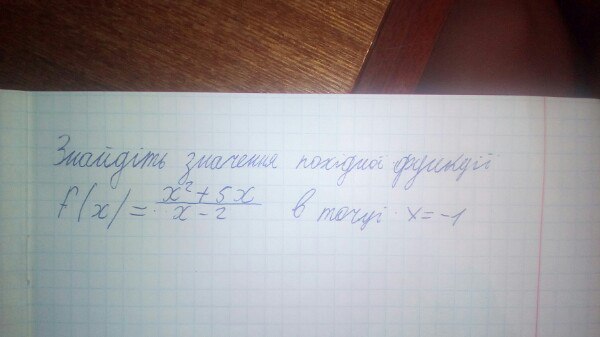 Знайдіть значення похідної функції
f(x) = \frac{x^2+5x}{x-2} в точці x=-1